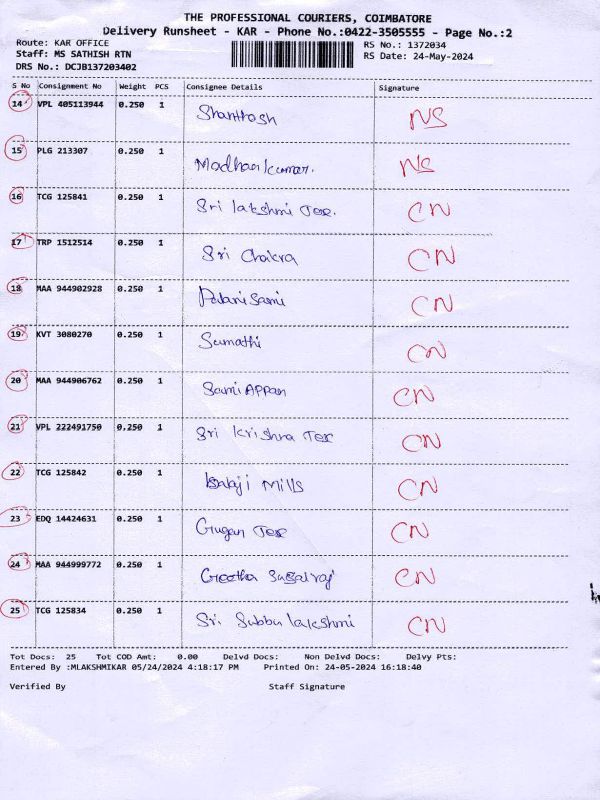 THE PROFESSIONAL COURIERS, COIMBATORE
Delivery Runsheet - KAR - Phone No.:0422-3505555 - Page No.:2
Route: KAR OFFICE RS No.: 1372034
Staff: MS SATHISH RTN RS Date: 24-May-2024
DRS No.: DCJB137203402
S No Consignment No Weight PCS Consignee Details Signature
14 VPL 405113944 0.250 1 Shanthosh NS
15 PLG 213307 0.250 1 Madhan kumar. NS
16 TCG 125841 0.250 1 Sri lakshmi Tex. CN
17 TRP 1512514 0.250 1 Sri Chakra CN
18 MAA 944902928 0.250 1 Palani Sami CN
19 KVT 3080270 0.250 1 Sumathi CN
20 MAA 944906762 0.250 1 Sami APPan CN
21 VPL 222491750 0.250 1 Sri krishna Tex CN
22 TCG 125842 0.250 1 balaji Mills CN
23 EDQ 14424631 0.250 1 Gugan Tex CN
24 MAA 944999772 0.250 1 Geetha CN
25 TCG 125834 0.250 1 Sri. Subbu lakshmi CN
Tot Docs: 25 Tot COD Amt: 0.00 Delvd Docs: Non Delvd Docs: Delvy Pts:
Entered By :MLAKSHMIKAR 05/24/2024 4:18:17 PM Printed On: 24-05-2024 16:18:40
Verified By Staff Signature